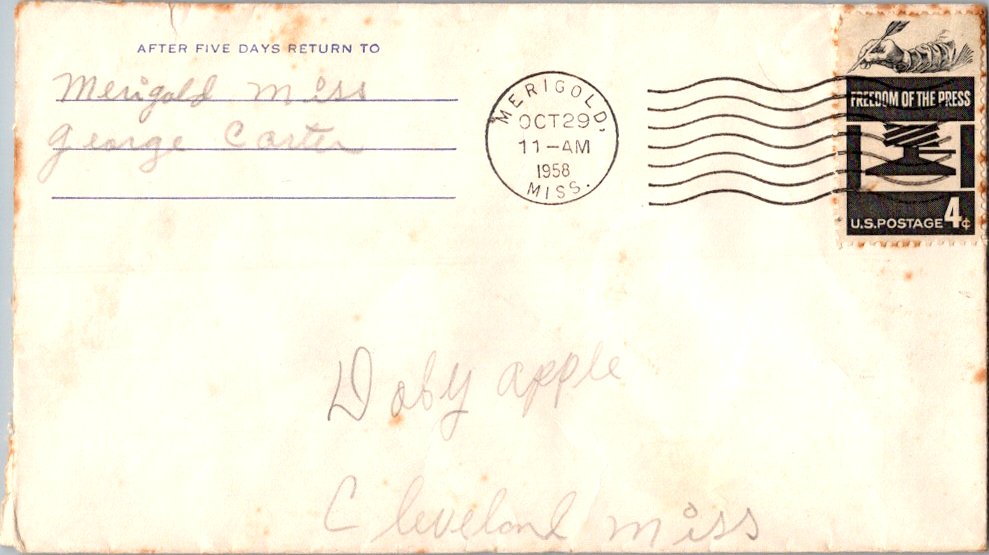 AFTER FIVE DAYS RETURN TO
Merigold Miss
George Carter
MERIGOLD,
OCT 29
11-AM
1958
MISS.
FREEDOM OF THE PRESS
U.S. POSTAGE 4¢
Doby apple
Cleveland Miss